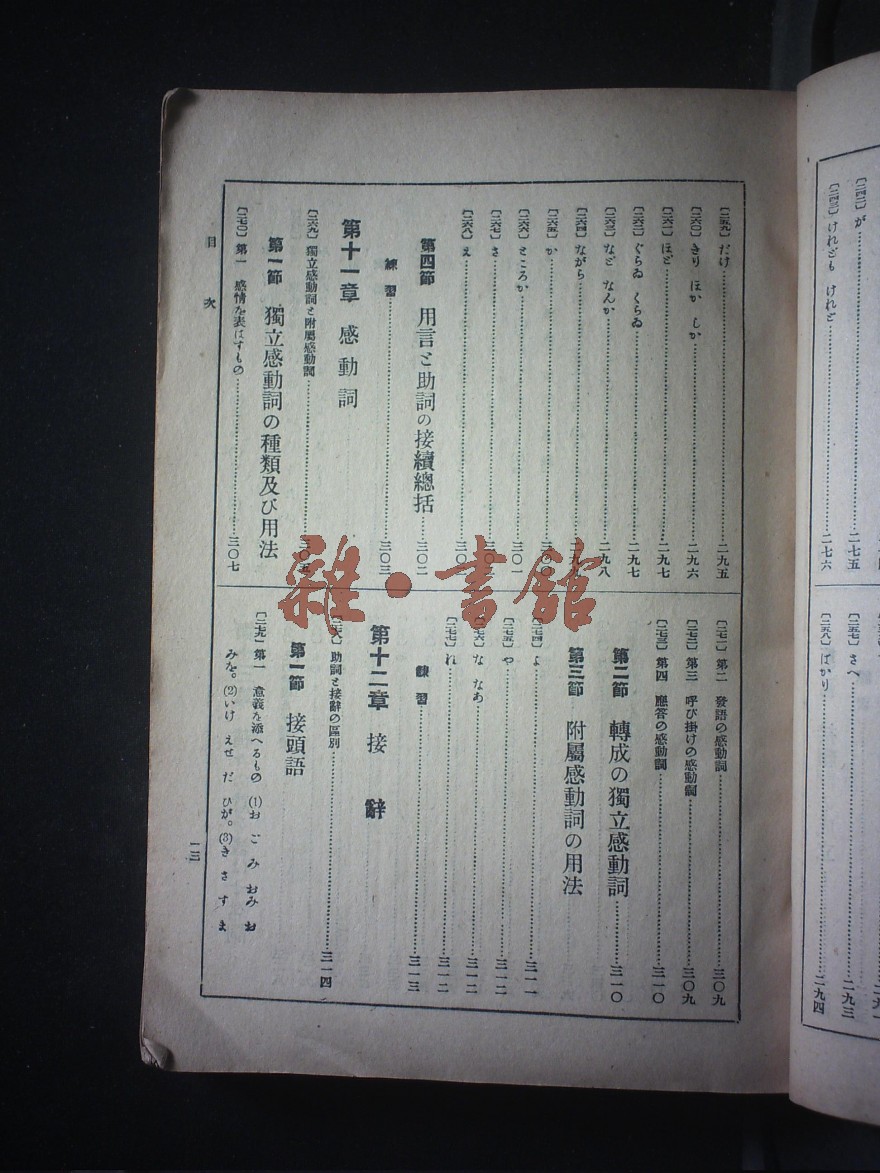 〔二四二〕が……二七五
〔二四三〕けれども けれど……二七六
〔二五七〕さへ……二九三
〔二五八〕ばかり……二九四
〔二五九〕だけ……二九五
〔二六〇〕きり ほか しか……二九六
〔二六一〕ほど……二九七
〔二六二〕ぐらゐ くらゐ……二九七
〔二六三〕など なんか……二九八
〔二六四〕ながら
〔二六五〕か
〔二六六〕ところか……三〇一
〔二六七〕さ
〔二六八〕え
第四節 用言と助詞の接續總括……三〇二
練習……三〇三
第十一章 感動詞
〔二六九〕獨立感動詞と附屬感動詞……三〇五
第一節 獨立感動詞の種類及び用法
〔二七〇〕第一 感情を表はすもの……三〇七
〔二七一〕第二 發語の感動詞……三〇九
〔二七二〕第三 呼び掛けの感動詞……三〇九
〔二七三〕第四 應答の感動詞……三一〇
第二節 轉成の獨立感動詞……三一〇
第三節 附屬感動詞の用法
〔二七四〕よ……三一一
〔二七五〕や……三一二
〔二七六〕な なあ……三一二
〔二七七〕れ……三一二
練習……三一三
第十二章 接辭
〔二七八〕助詞と接辭の區別……三一四
第一節 接頭語
〔二七九〕第一 意義を添へるもの (1)お ご み おみ お
みを。(2)いけ えせ だ ひが。(3)き さ す ま
目次
一三
雜·書館